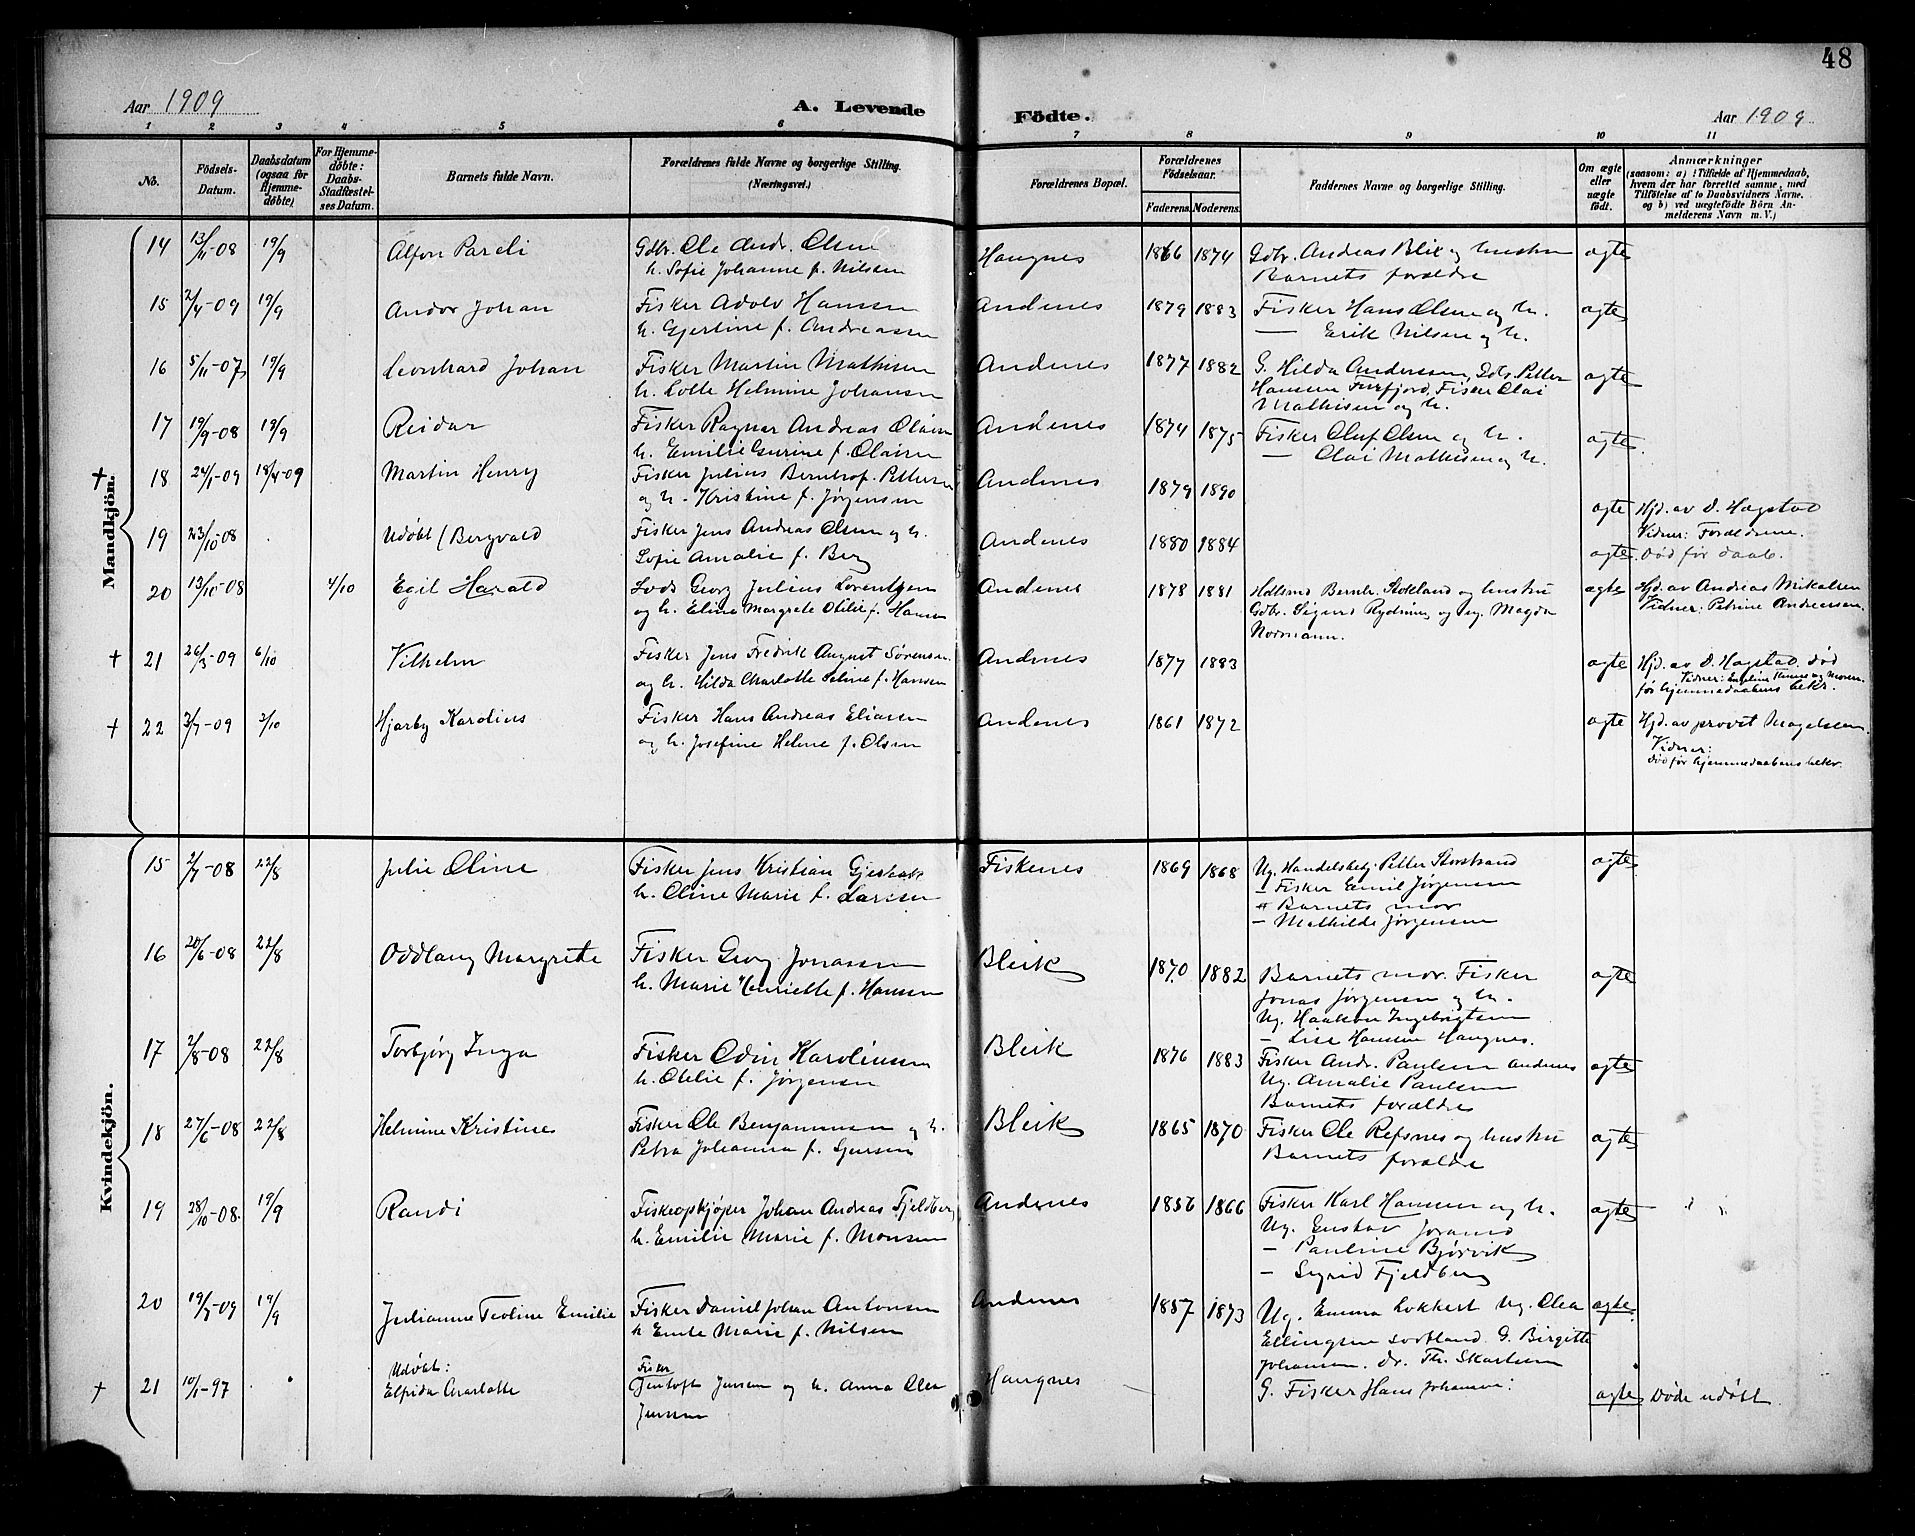 48
Aar 1909 A. Levende Födte. Aar 1909
1 2 3 4 5 6 7 8 9 10 11
No. Födsels-Datum. Daabsdatum (ogsaa for Hjemmedöbte) For Hjemmedöbte: Daabs-Stadfæstelses Datum. Barnets fulde Navn. Forældrenes fulde Navne og borgerlige Stilling. (Næringsvei.) Forældrenes Bopæl. Forældrenes Födselsaar. Faderens. Moderens. Faddernes Navne og borgerlige Stilling. Om ægte eller uægte födt. Anmærkninger (saasom: a) i Tilfælde af Hjemmedaab, hvem der har forrettet samme, med Tilföielse af to Daabsvidners Navne, og b) ved uægtefödte Börn Anmelderens Navn m. V.)
Mandkjön.
14 13/11-08 19/9 Alfon Pareli Gdbr. Ole Andr. Olsen Haugnes 1866 1874 Gdbr. Andreas Blix og hustru ægte
h. Sofie Johanne f. Nilsen Barnets forældre
15 2/4-09 19/9 Andor Johan Fisker Adolv Hansen Andenes 1879 1883 Fisker Hans Olsen og h. ægte
h. Gjertine f. Andreasen — Erik Nilsen og h.
16 5/11-07 19/9 Leonhard Johan Fisker Martin Mathisen Andenes 1877 1882 G. Hilda Andersen, Gdb. Petter ægte
h. Lotte Helmine Johansen Hansen Furfjord, Fisker Olai
Mathisen og h.
17 19/9-08 19/9 Reidar Fisker Ragnar Andreas Olaisen Andenes 1874 1875 Fisker Oluf Olsen og h. ægte
h. Emilie Gurine f. Olaisen — Olai Mathisen og h.
† 18 24/1-09 18/4-09 Martin Henry Fisker Julius Berntsof. Pettersen Andenes 1879 1890
og h. Kristine f. Jørgensen ægte Hjd. av D. Hagstad
Vidner: Forældrene.
19 23/10-08 Udøbt (Bergvald Fisker Jens Andreas Olsen og h. Andenes 1880 1884
Sofie Amalie f. Berg ægte. Død før daab.
20 13/10-08 4/10 Egil Harald Lods Georg Julius Lorentzen Andenes 1878 1881 Hdlsmd Bernh. Stokland og hustru ægte Hjd. av Andreas Mikalsen
og h. Eline Margrete Otilie f. Hansen Gdbr. Sigurd Rydning og Ug. Magda Vidner: Petrine Andreasen
Normann.
† 21 26/3-09 6/10 Vilhelm Fisker Jens Fredrik August Sørensen Andenes 1877 1883 ægte Hjd. av D. Hagstad. død
og h. Hilda Charlotte Seline f. Hansen Vidner: og moren.
før hjemmedaabens bekr.
† 22 3/7-09 3/10 Hjarby Karolius Fisker Hans Andreas Eliasen Andenes 1861 1872 ægte Hjd. av provst Magelssen.
og h. Josefine Helene f. Olsen Vidner:
død før hjemmedaabens bekr.
Kvindekjön.
15 2/7-08 22/8 Julie Oline Fisker Jens Kristian Gjesbak Fiskenes 1869 1868 Ug. Handelsbetj. Petter Storstrand ægte
h. Oline Marie f. Larsen — Fisker Emil Jørgensen
" Barnets mor
— Mathilde Jørgensen
16 20/6-08 22/8 Oddlaug Margrete Fisker Georg Jonassen Bleik 1870. 1882 Barnets mor. Fisker ægte
h. Marie Henriette f. Hansen Jonas Jørgensen og h.
Ug. Haakon Ingebrigtsen
— Lise Hansen Haugnes.
17 2/8-08 22/8 Torbjørg Inga Fisker Odin Karolinsen Bleik 1876 1883 Fisker Andr. Paulsen Andenes ægte
h. Otelie f. Jørgensen Ug. Amalie Paulsen
Barnets forældre
18 27/6-08 22/8 Helmine Kristine Fisker Ole Benjaminsen og h. Bleik 1865 1870 Fisker Ole Refsnes og hustru ægte
Petra Johanna f. Sjursen Barnets forældre
19 28/10-08. 19/9 Randi Fiskeopkjøper Johan Andreas Fjeldberg Andenes 1856 1866 Fisker Karl Hansen og h. ægte
h. Emilie Marie f. Monsen Ug. Gustav
— Pauline Bjørvik
— Sigrid Fjeldberg
20 19/7-09 19/9 Julianne Teoline Emilie Fisker Daniel Johan Antonsen Andenes 1857 1873 Ug. Emma Lokkert Ug. Olea ægte.
h. Marie f. Nilsen Ellingsen Sortland. G. Birgitte
Johansen. Dr. Th. Skarlsem
G. Fisker Hans Johansen:
† 21 10/1-97 Udøbt: Fisker Haugnes ægte Døde udøbt.
Elfrida Charlotte Jentoft Jensen og h. Anna Olea
Jensen